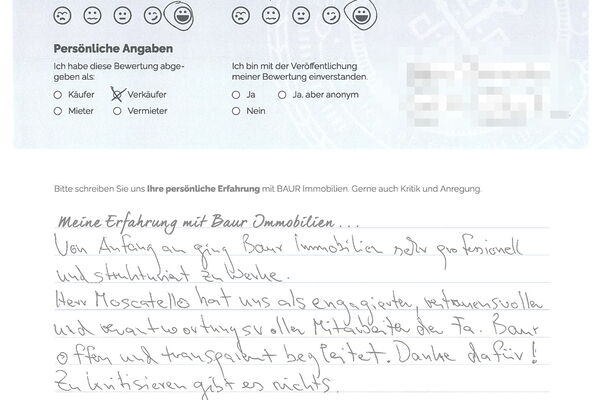 Persönliche Angaben
Ich habe diese Bewertung abge-
geben als:
Käufer
Verkäufer
Mieter
Vermieter
Ich bin mit der Veröffentlichung
meiner Bewertung einverstanden.
Ja
Ja, aber anonym
Nein
Bitte schreiben Sie uns Ihre persönliche Erfahrung mit BAUR Immobilien. Gerne auch Kritik und Anregung.
Meine Erfahrung mit Baur Immobilien...
Von Anfang an ging Baur Immobilien sehr professionell
und strukturiert zu Werke.
Herr Moscatello hat uns als engagierter, vertrauensvoller
und verantwortungsvoller Mitarbeiter der Fa. Baur
offen und transparent begleitet. Danke dafür!
Zu kritisieren gibt es nichts.